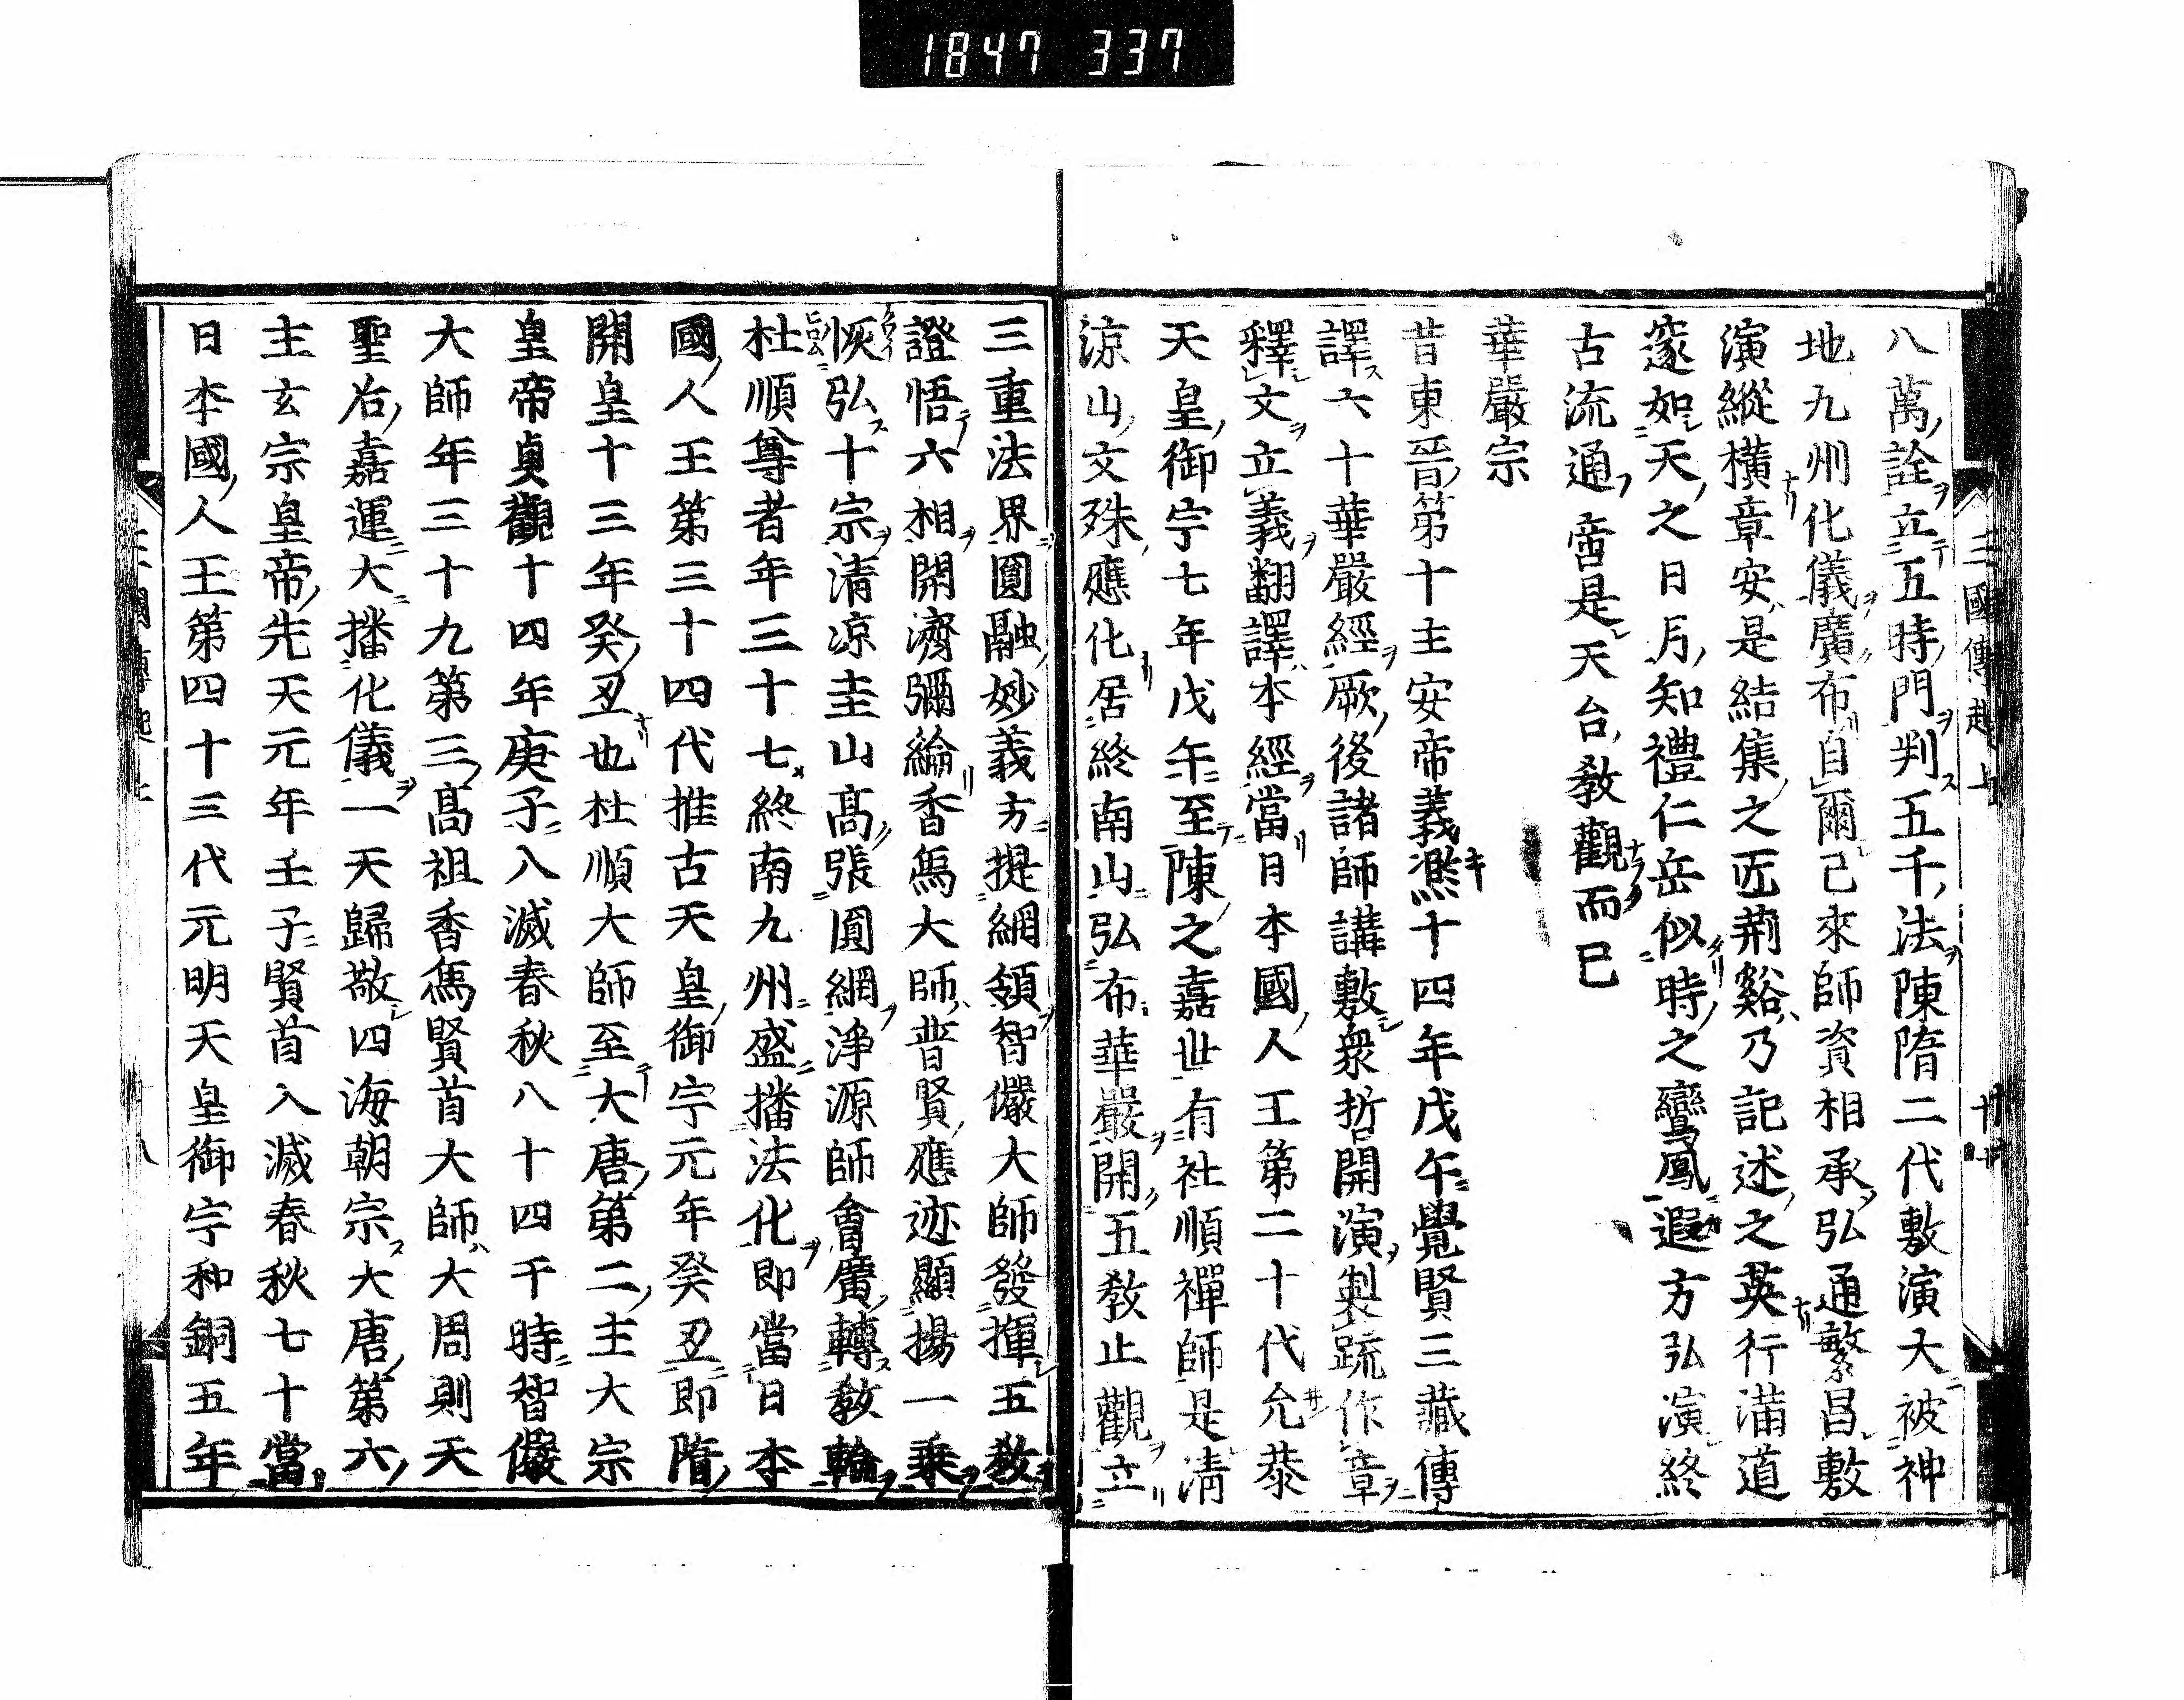 1847 337
八萬詮立五時門判五千法陳隋二代敷演大被神
地九州化儀廣布自爾已來師資相承弘通繁昌敷
演縱橫章安是結集之匠荊谿乃記述之英行滿道
邃如天之日月知禮仁岳似時之鸞鳳遐方弘演終
古流通啻是天台教觀而已
華嚴宗
昔東晉第十主安帝義凞十四年戊午覺賢三藏傳
譯六十華嚴經厥後諸師講敷衆哲開演製疏作章
釋文立義翻譯本經當日本國人王第二十代允恭
天皇御宇七年戊午至陳之嘉世有杜順禪師是淸
涼山文殊應化居終南山弘布華嚴開五敎止觀立
三重法界圓融妙義方提綱領智儼大師發揮五敎
證悟六相開濟彌綸香爲大師普賢應迹顯揚一乘
恢弘十宗淸凉圭山高張圓網淨源師會廣轉敎輪
杜順尊者年三十七終南九州盛播法化即當日本
國人王第三十四代推古天皇御宇元年癸丑即隋
開皇十三年癸丑也杜順大師至大唐第二主大宗
皇帝貞觀十四年庚子入滅春秋八十四干時智儼
大師年三十九第三高祖香爲賢首大師大周則天
聖冶嘉運大播化儀一天歸敬四海朝宗大唐第六
主玄宗皇帝先天元年壬子賢首入滅春秋七十當
日本國人王第四十三代元明天皇御宇和銅五年
三國傳起上